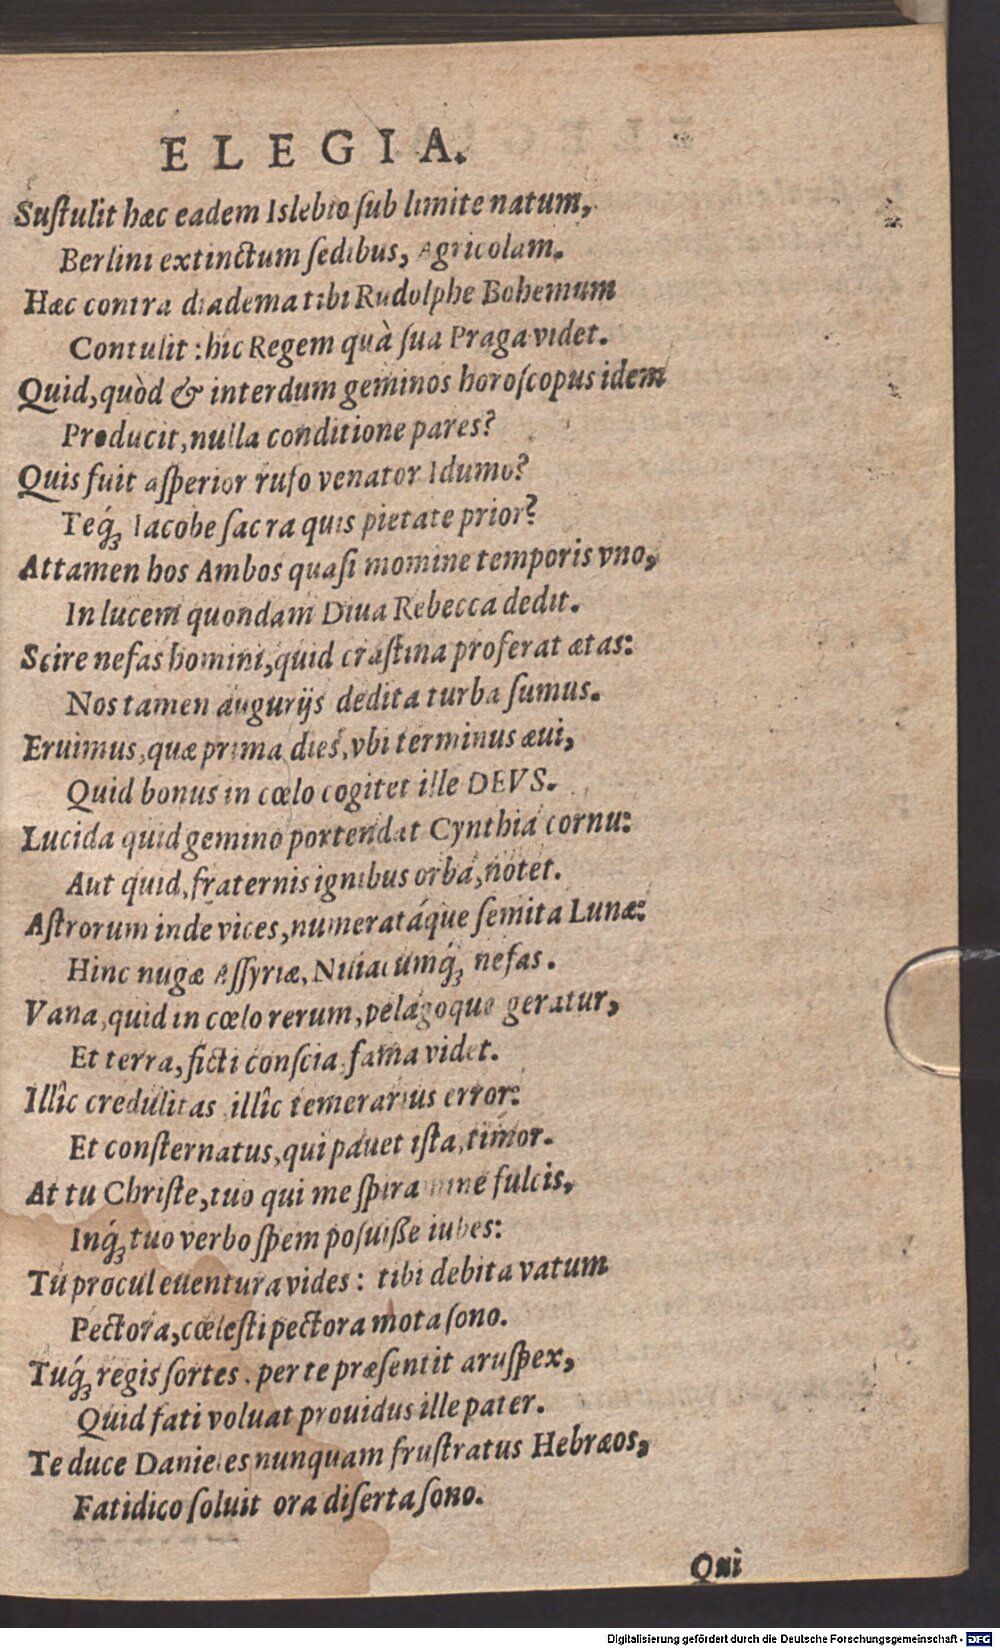 ELEGIA.
Suſtulit hæc eadem Islebio ſub limite natum,
Berlini extinctum ſedibus, Agricolam.
Hæc contra diadema tibi Rudolphe Bohemum
Contulit: hic Regem quà ſua Praga videt.
Quid, quòd & interdum geminos horoſcopus idem
Producit, nulla conditione pares?
Quis fuit aſperior rufo venator Idumo?
Teq́ꝫ Iacobe ſacra quis pietate prior?
Attamen hos Ambos quaſi momine temporis vno,
In lucem quondam Diua Rebecca dedit.
Scire nefas homini, quid craſtina proferat ætas:
Nos tamen augurijs dedita turba ſumus.
Eruimus, quæ prima dies, vbi terminus æui,
Quid bonus in cœlo cogitet ille DEVS.
Lucida quid gemino portendat Cynthia cornu:
Aut quid, fraternis ignibus orba, notet.
Aſtrorum inde vices, numeratáque ſemita Lunæ:
Hinc nugæ Aſſyriæ, Niliacumq́ꝫ nefas.
Vana, quid in cœlo rerum, pelagoque geratur,
Et terra, ficti conſcia fama videt.
Illîc credulitas illîc temerarius error:
Et conſternatus, qui pauet iſta, timor.
At tu Chriſte, tuo qui me ſpiramine fulcis,
Inq́ꝫ tuo verbo ſpem poſuiſſe iubes:
Tu procul euentura vides: tibi debita vatum
Pectora, cœleſti pectora mota ſono.
Tuq́ꝫ regis ſortes. per te præſentit aruſpex,
Quid fati voluat prouidus ille pater.
Te duce Danieles nunquam fruſtratus Hebræos,
Fatidico ſoluit ora diſerta ſono.
Qui
Digitalisierung gefördert durch die Deutsche Forschungsgemeinschaft - DFG